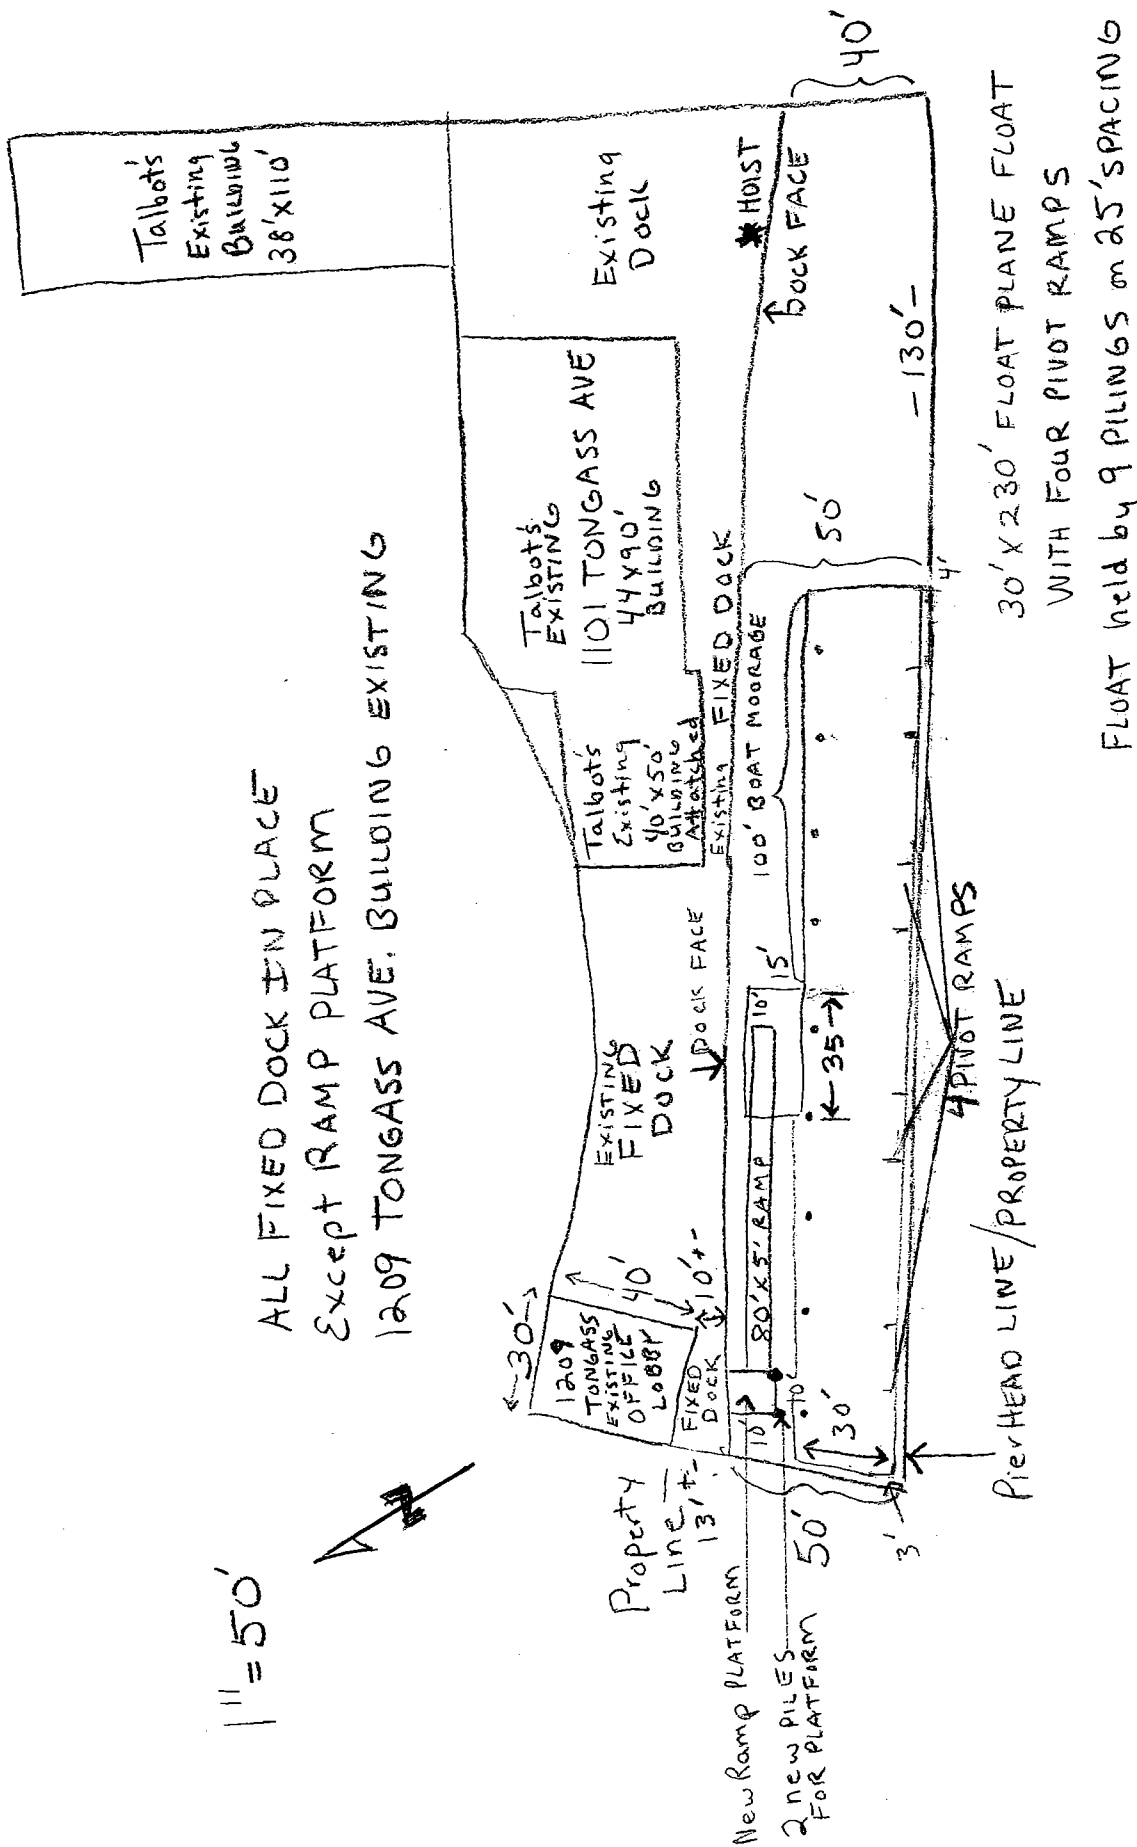 1"=50'
ALL FIXED DOCK IN PLACE
Except RAMP PLATFORM
1209 TONGASS AVE. BUILDING EXISTING
Talbot's
Existing
Building
38'X110'
Existing
Dock
HOIST
DOCK FACE
40'
Talbot's
EXISTING
1101 TONGASS AVE
44X90'
BUILDING
Talbot's
Existing
40'X50'
BUILDING
Attatched
Existing FIXED DOCK
100' BOAT MOORAGE
50'
-130'-
4'
EXISTING
FIXED
DOCK
DOCK FACE
15'
10'
35
80'X5' RAMP
30'
40'
10'+-
1209
TONGASS
EXISTING
OFFICE
LOBBY
FIXED
DOCK
10'
10'
30'
Property
Line
13'+-
50'
3'
New Ramp PLATFORM
2 new PILES
FOR PLATFORM
4 PIVOT RAMPS
PierHEAD LINE/PROPERTY LINE
30' X 230' FLOAT PLANE FLOAT
WITH FOUR PIVOT RAMPS
FLOAT held by 9 PILINGS on 25' SPACING